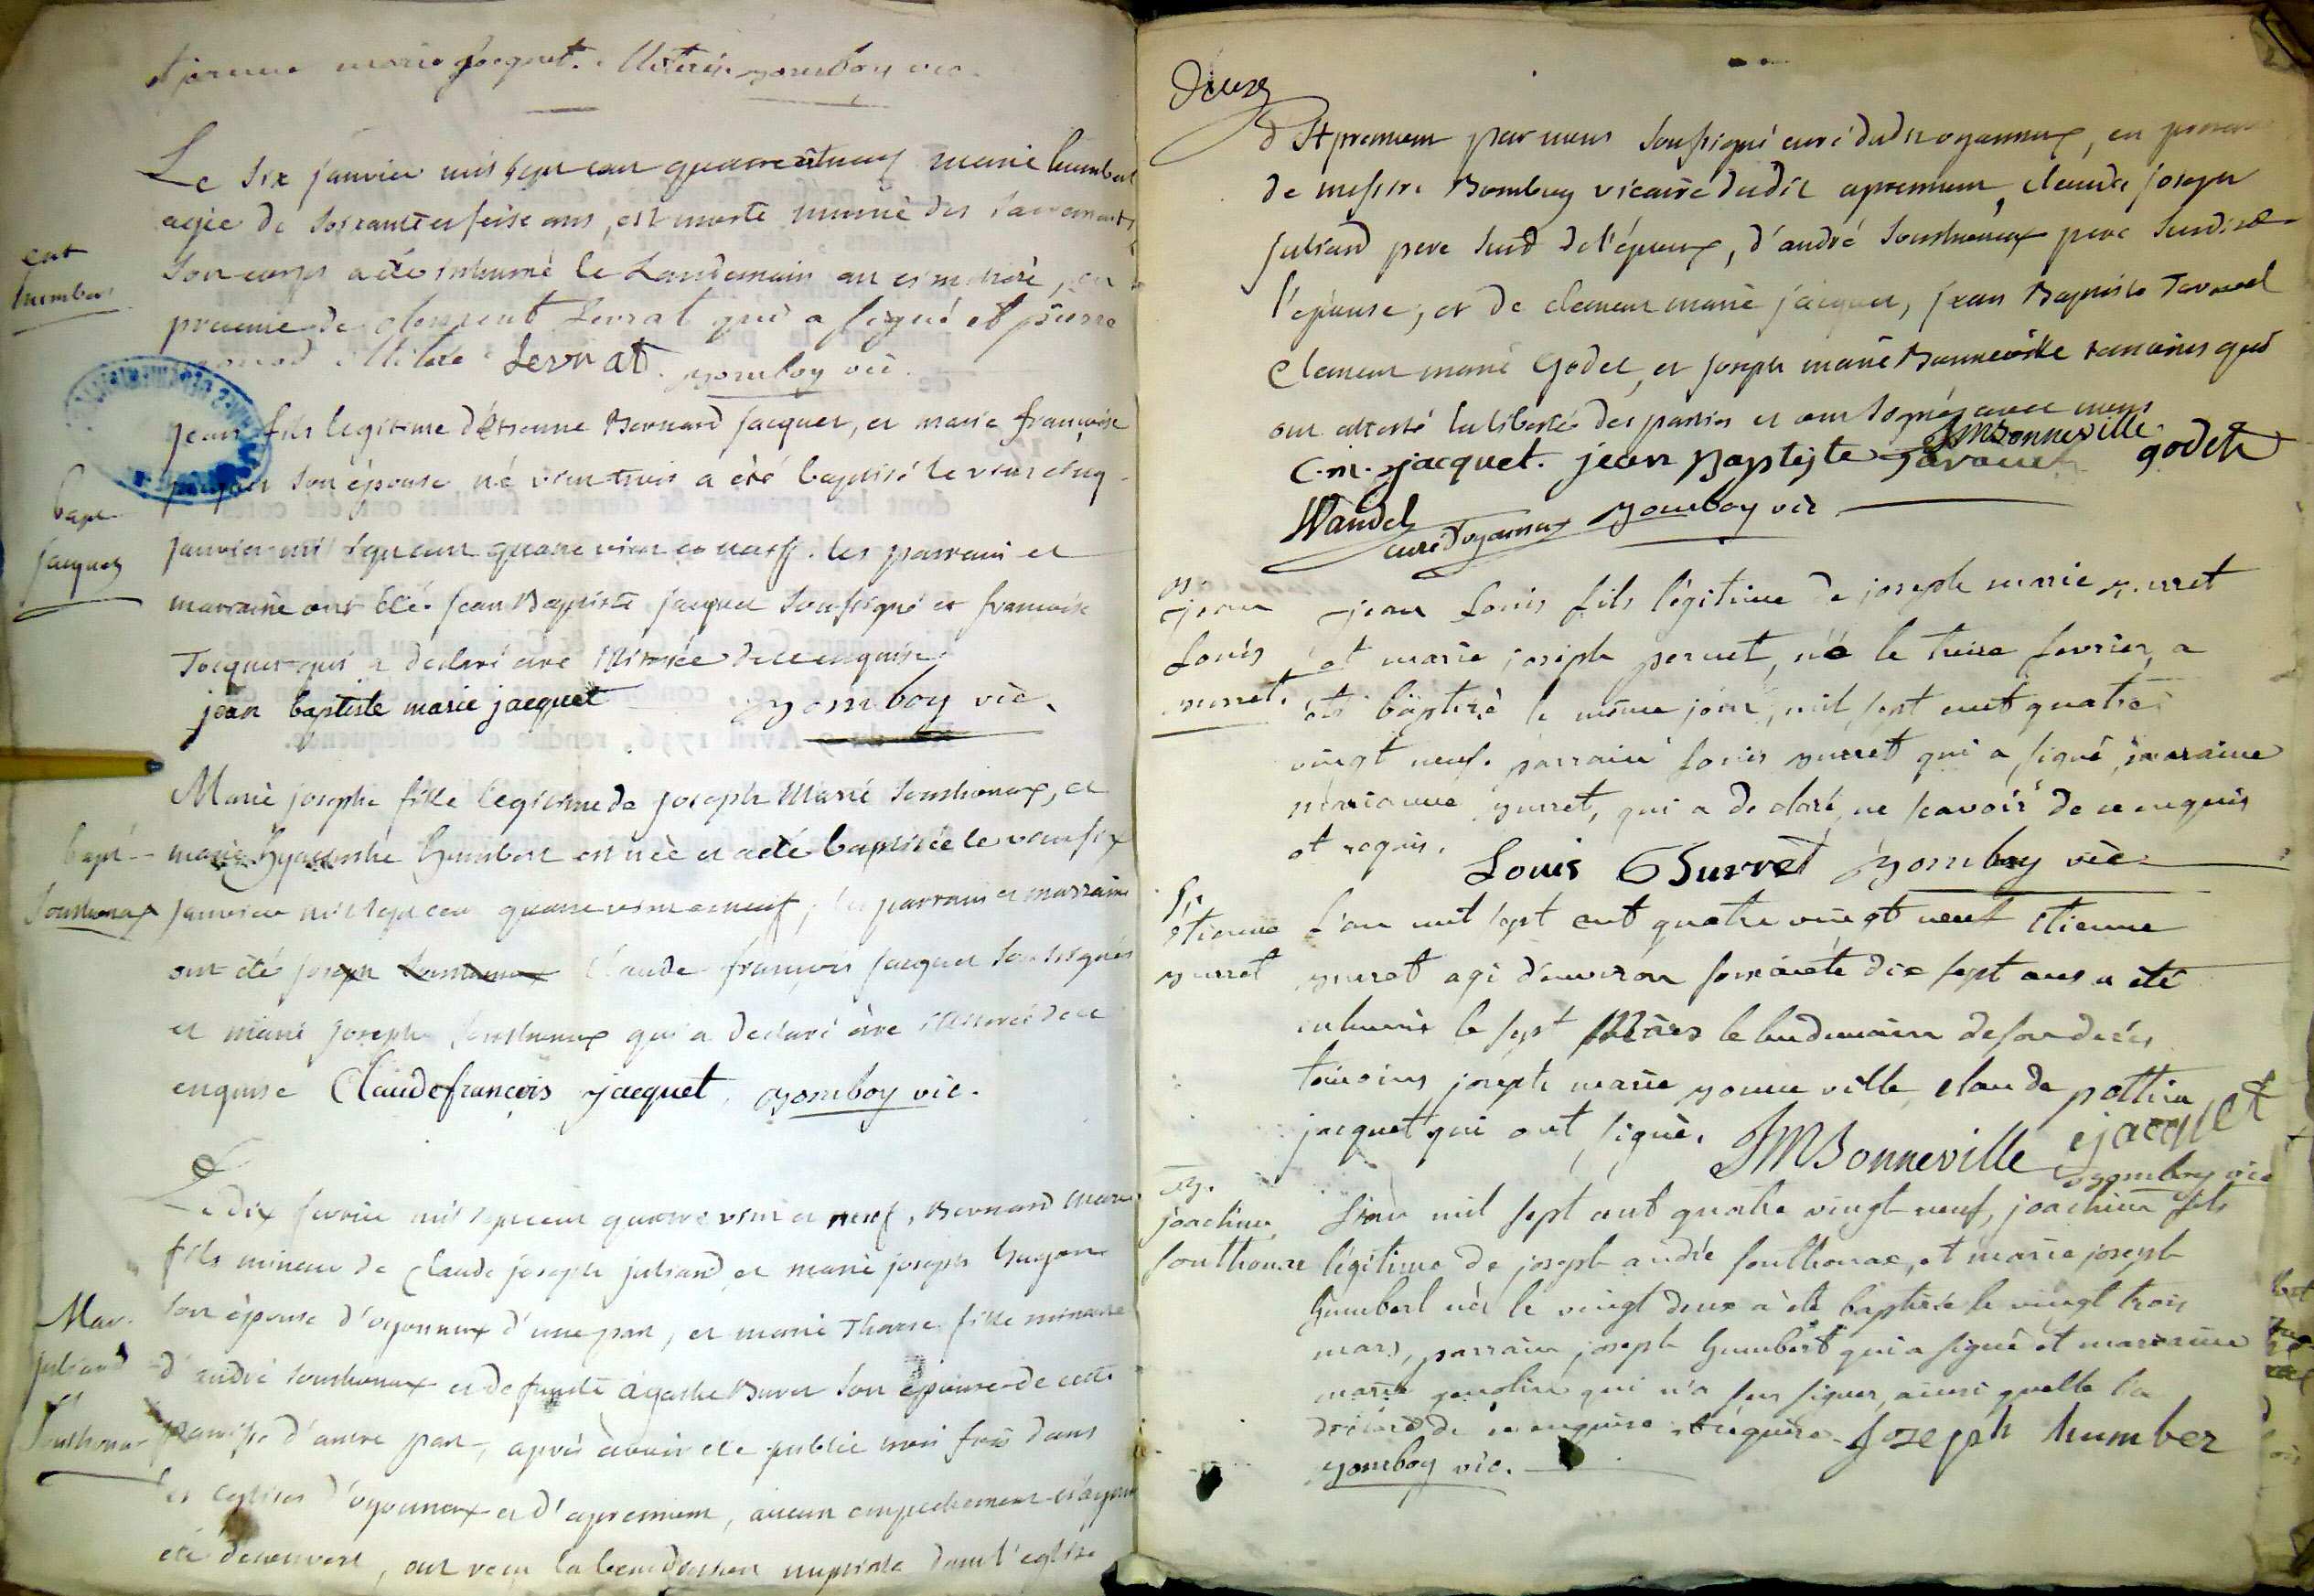 et jeanne marie jacquet. illiterés. bomboy vic.
Le six janvier mil sept cent quatre vt neuf marie humbert
agée de soixante et seise ans, est morte munie des sacrements
son corps a été inhumé le Landemain au cimetiere, en
presence de clement Levrat qui a signé et pierre
illiteré Levrat. bomboy vic.
ent
humbert
jean fils legitime d'étienne Bernard jacquet, et marie françoise
son épouse né vint trois a été baptisé le vint cinq
janvier mil sept cent quatre vint et neuf. les parrain et
marraine ont été jean Baptiste jacquet soussigné et francoise
Jacquet qui a declaré etre illiterée de ce enquise.
jean baptiste marie jacquet bomboy vic.
bapt
jacquet
Marie josephe fille legitime de joseph Marie Sonthonax, et
marie hyacinthe humbert est née et a été baptisée le vint six
janvier mil sept cent quatre vint et neuf, les parrain et marraine
ont été joseph Sonthonax Claude françois jacquet soussignés
et marie josephe Sonthonax qui a declaré etre illiterée de ce
enquise Claude françois jacquet. bomboy vic.
bapt
Sonthonax
Le dix fevrier mil sept cent quatre vint et neuf, Bernard Marie
fils mineur de Claude joseph juliand et marie joseph hugon
son épouse d'oyonnax d'une part, et marie Therese fille mineure
d'andré Sonthonax et defunte agathe Buret son épouse de cette
paroisse d'autre part, après avoir été publié trois fois dans
les eglises d'oyonnax et d'apremont, aucun empechement n'ayant
été decouvert, ont recu la benediction nuptiale dans l'eglise
Mar.
juliand
et
Sonthonax
Deux
d'Apremont par nous soussigné curé dudit oyonnax, en presence
de messire Bomboy vicaire dudit apremont, claude joseph
juliand pere dud. de l'époux, d'andré Sonthonax pere de
l'epouse, et de clement marie jacquet, jean Baptiste Tavernet
Clement marie Godet, et joseph marie Bonneville temoins qui
ont attesté la liberté des parties et ont signés avec nous
JMBonneville
C.m. jacquet. jean Baptiste godet
Wandel
curé d'oyonnax bomboy vic
b.
jean
Louis
burret.
jean Louis fils légitime de joseph marie burret
et marie joseph pernet, né le treise fevrier, a
été baptisé le même jour, mil sept cent quatre
vingt neuf. parrain Louis burret qui a signé, maraine
marianne burret, qui a declaré ne scavoir de ce enquis
et requis.
Louis Burret bomboy vic.
S.
étienne
burret
L'an mil sept cent quatre vingt neuf étienne
burret agé d'environ soixante dix sept ans a été
inhumé le sept Mars le landemain de son decés
temoins joseph marie bonneville, claude
jacquet qui ont signé. JMBonneville jacquet
bomboy vic
b.
joachim
sonthonax
L'an mil sept cent quatre vingt neuf, joachim fils
légitime de joseph andré sonthonax, et marie joseph
humbert né le vingt deux a été baptisé le vingt trois
mars, parrain joseph humbert qui a signé et maraine
marie qui n'a sçu signer, ainsi quelle l'a
declaré de ce enquise et requise. Joseph humber
bomboy vic.